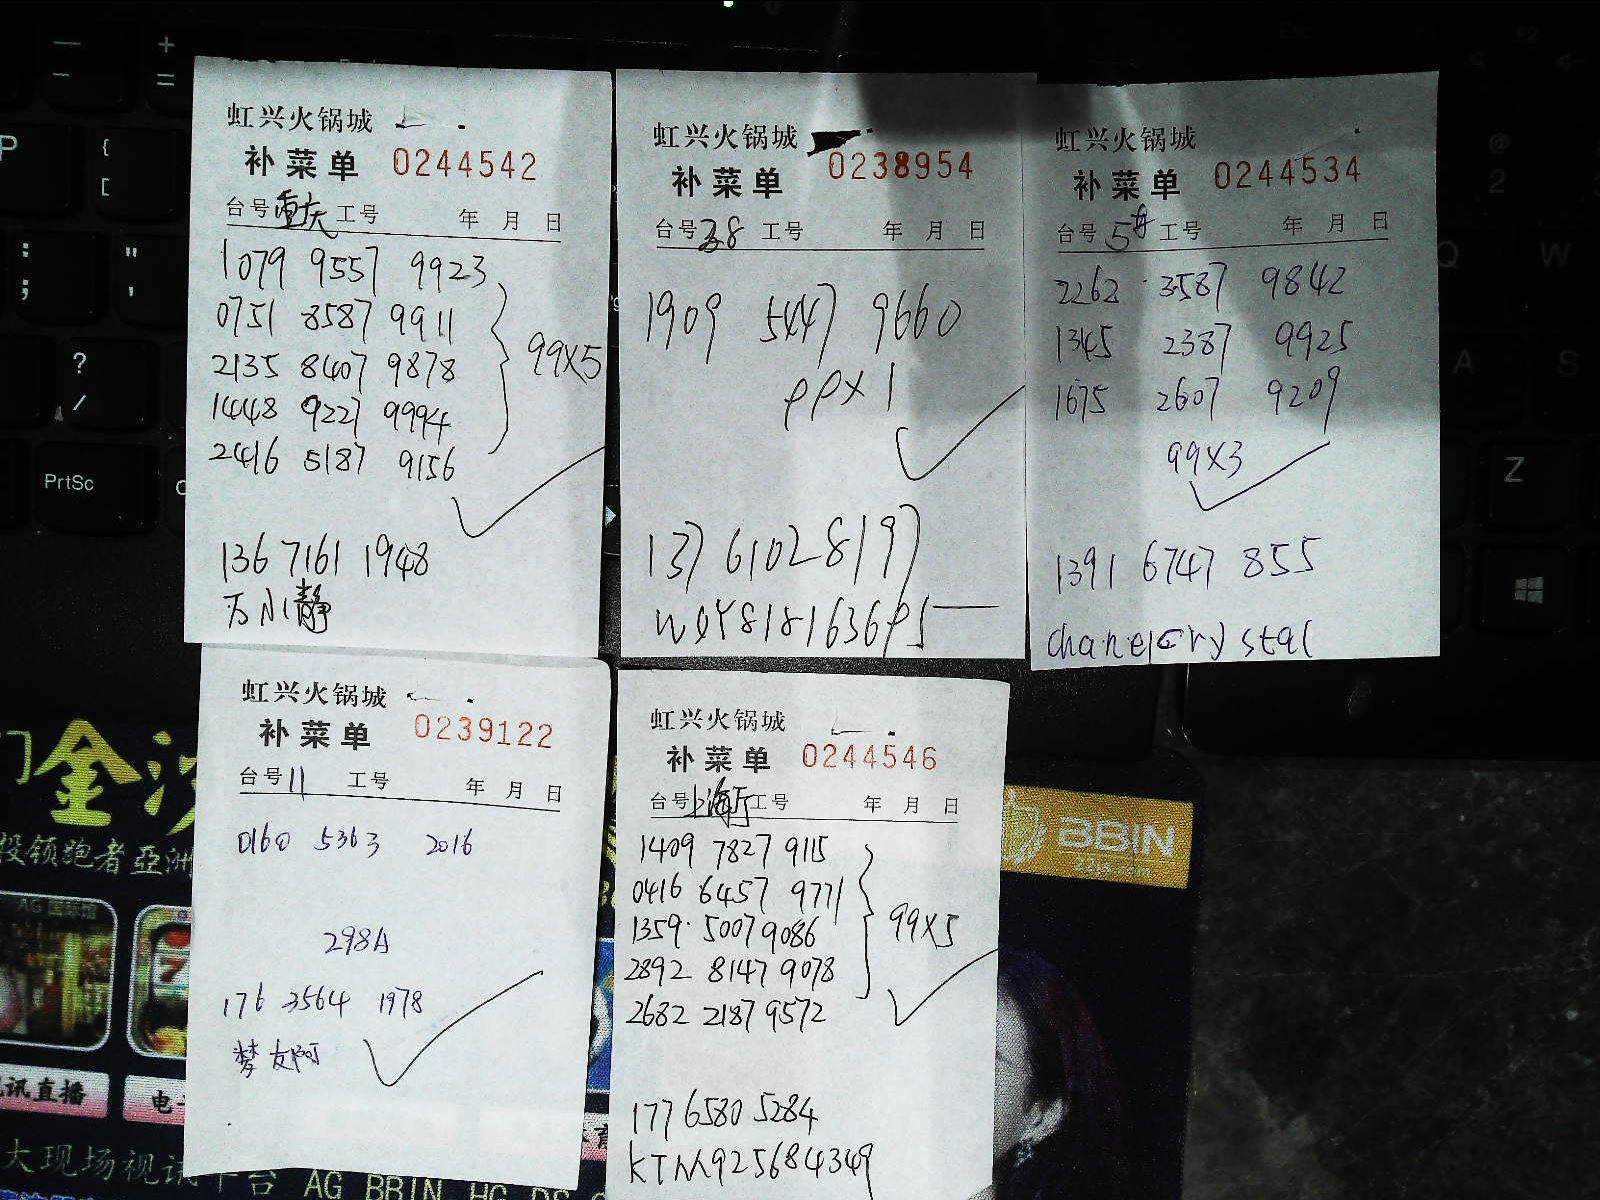 虹兴火锅城
补菜单 0244542
台号重庆 工号 年 月 日
1079 9557 9923
0751 8587 9911
2135 8407 9878
1448 9227 9994
2416 5187 9156
99X5
136 7161 1948
万小静
虹兴火锅城
补菜单 0238954
台号 38 工号 年 月 日
1909 5447 9660
PPX1
137 6102 8197
虹兴火锅城
补菜单 0244534
台号 5号 工号 年 月 日
2262 3587 9842
1345 2387 9925
1675 2607 9209
99X3
1391 6747 855
chanelcrystal
虹兴火锅城
补菜单 0239122
台号 11 工号 年 月 日
0160 5363 2016
298A
176 3564 1978
虹兴火锅城
补菜单 0244546
台号上海厅工号 年 月 日
1409 7827 9115
0416 6457 9771
1359 5007 9086
2892 8147 9078
2682 2187 9572
99X5
177 6580 5284
KTM925684349
P
PrtSc
Q
W
A
S
Z
2
门金沙
投领跑者亞洲
AG
讯直播
电
大现场视讯平台 AG BBIN HG DS
BBIN